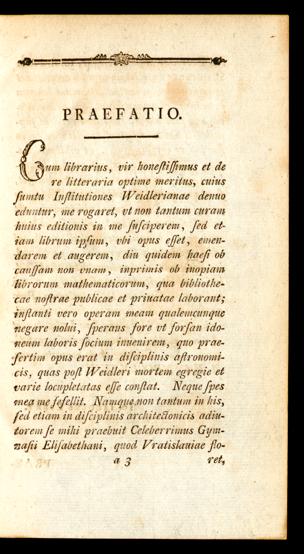 PRAEFATIO.
Cum librarius, vir honeſtiſſimus et de
re litteraria optime meritus, cuius
ſumtu Inſtitutiones Weidlerianae denuo
eduntur, me rogaret, vt non tantum curam
huius editionis in me ſuſciperem, ſed et-
iam librum ipſum, vbi opus eſſet, emen-
darem et augerem, diu quidem haeſi ob
cauſſam non vnam, inprimis ob inopiam
librorum mathematicorum, qua bibliothe-
cae noſtrae publicae et priuatae laborant;
inſtanti vero operam meam qualemcunque
negare nolui, ſperans fore vt forſan ido-
neum laboris ſocium inuenirem, quo prae-
ſertim opus erat in diſciplinis aſtronomi-
cis, quas poſt Weidleri mortem egregie et
varie locupletatas eſſe conſtat. Neque ſpes
mea me fefellit. Namque non tantum in his,
ſed etiam in diſciplinis architectonicis adiu-
torem ſe mihi praebuit Celeberrimus Gym-
naſii Eliſabethani, quod Vratislauiae flo-
a 3 ret,